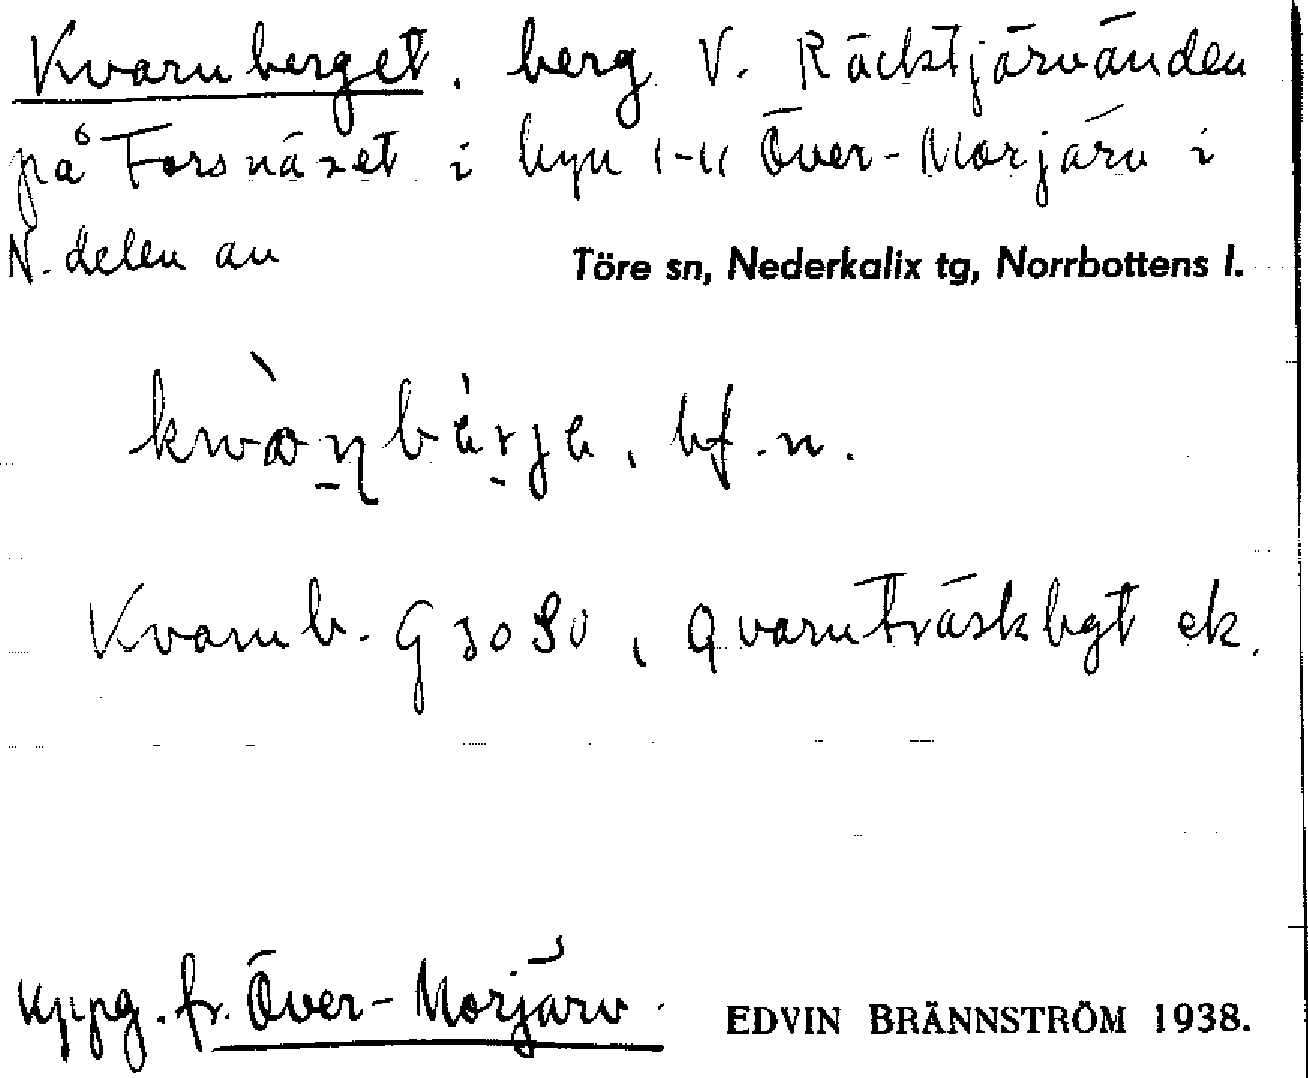 Kvarnberget, berg V. Räcktjärvänden
på Forsnäset i byn 1-11 Över-Morjärv i
N. delen av Töre sn, Nederkalix tg, Norrbottens l.
bf. n.
Kvarnb. G 3080, Qvarnträskbgt ek.
uppg. fr. Över-Morjärv. EDVIN BRÄNNSTRÖM 1938.